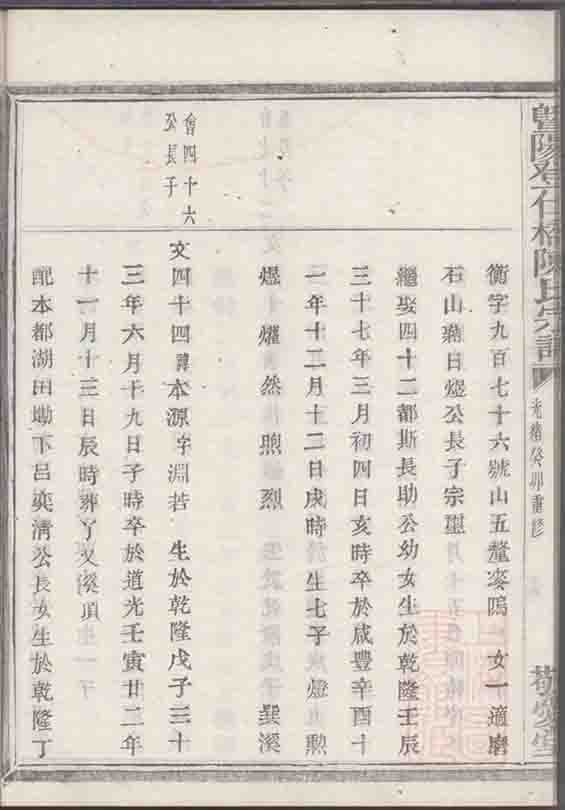 暨陽登石橋陳氏宗譜
光緒癸卯重修
敬愛堂
衡字九百七十六號山五釐 女一適磨
石山葉日煜公長子宗
繼娶四十二都斯長助公幼女生於乾隆壬辰
三十七年三月初四日亥時卒於咸豐辛酉十
一年十二月十二日戌時 生七子 燈 勲
煜 燿 然 煦 烈
巽溪
會四十六
公長子
文四十四諱本源字淵若 生於乾隆戊子三十
三年六月十九日子時卒於道光壬寅廿二年
十一月十三日辰時葬丫叉溪頂
配本都湖田坳下呂奕清公長女生於乾隆丁